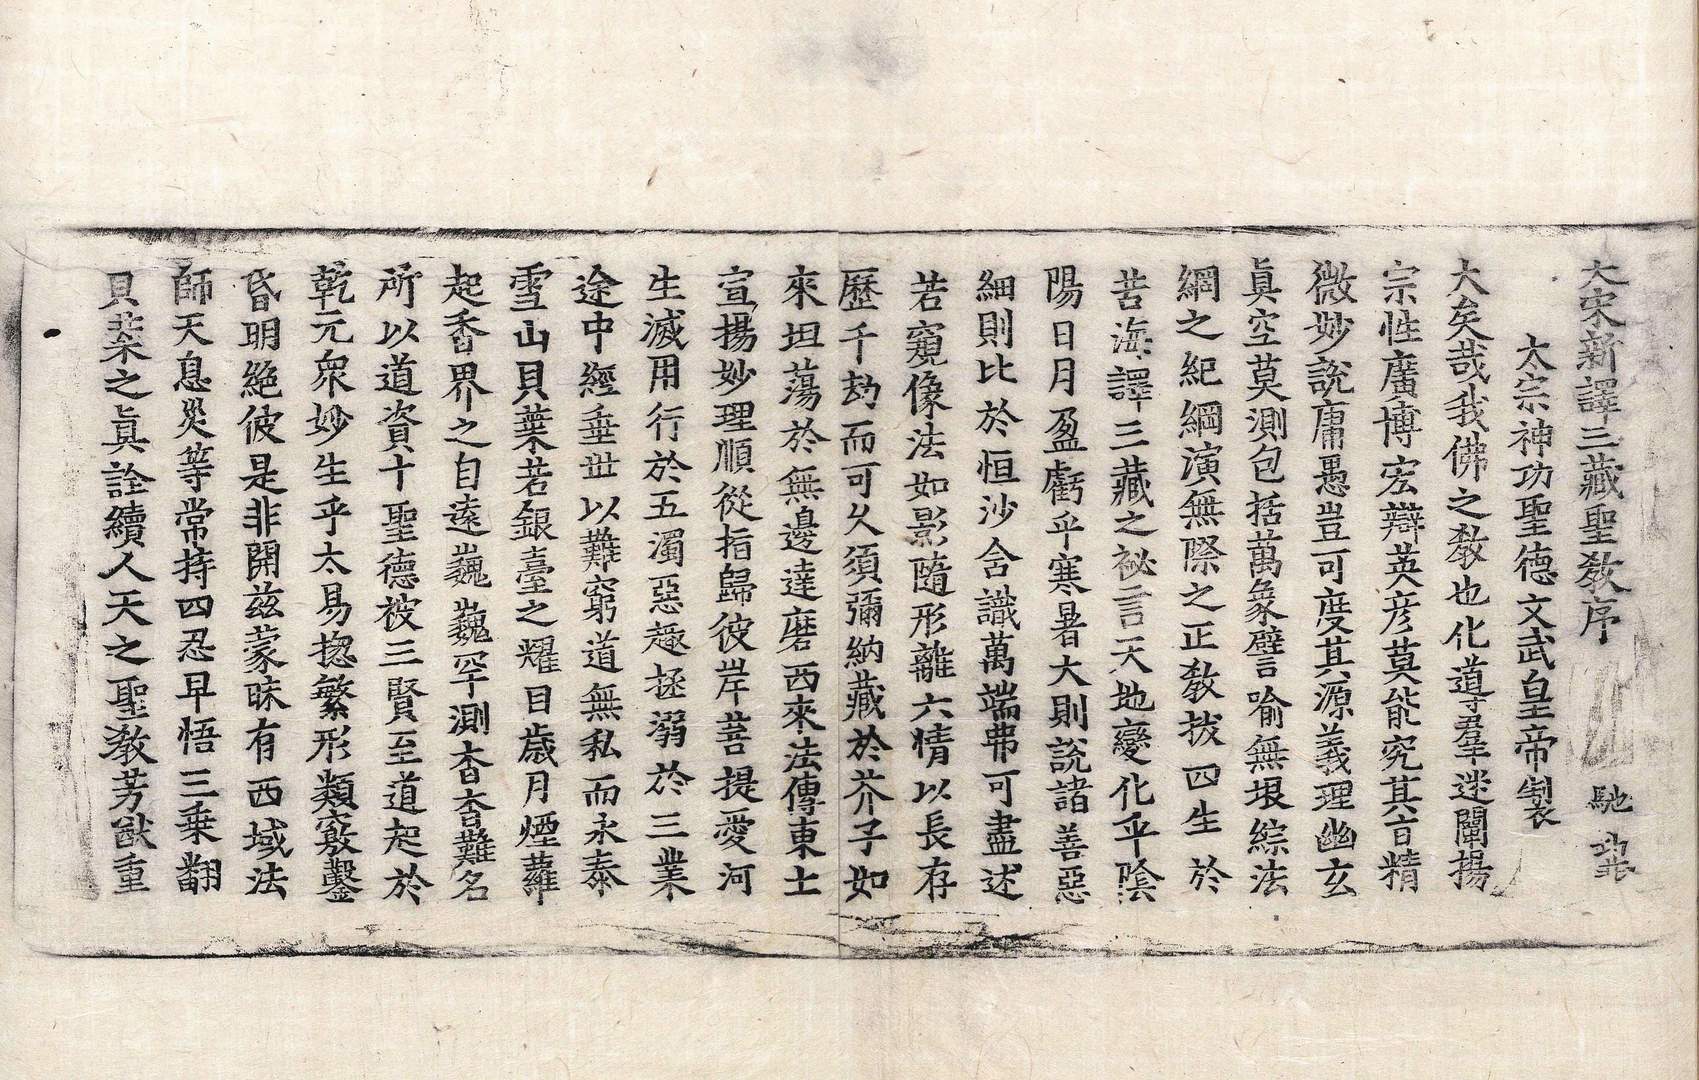 大宋新譯三藏聖敎序 馳
太宗神功聖德文武皇帝製
大矣哉我佛之敎也化導羣迷闡揚
宗性廣博宏辯英彦莫能究其旨精
微妙說庸愚豈可度其源義理幽玄
眞空莫測包括萬象譬喻無垠綜法
網之紀綱演無際之正敎拔四生於
苦海譯三藏之祕言天地變化乎陰
陽日月盈虧乎寒暑大則說諸善惡
細則比於恒沙含識萬端弗可盡述
若窺像法如影隨形離六情以長存
歷千劫而可久須彌納藏於芥子如
來坦蕩於無邊達磨西來法傳東土
宣揚妙理順從指歸彼岸菩提愛河
生滅用行於五濁惡趣拯溺於三業
途中經垂丗以難窮道無私而永泰
雪山貝葉若銀臺之耀目歲月煙蘿
起香界之自遠巍巍罕測杳杳難名
所以道資十聖德被三賢至道起於
乾元衆妙生乎太易揔繁形類竅鑿
昏明絶彼是非開玆蒙昧有西域法
師天息災等常持四忍早悟三乗翻
貝葉之眞詮續人天之聖敎芳猷重